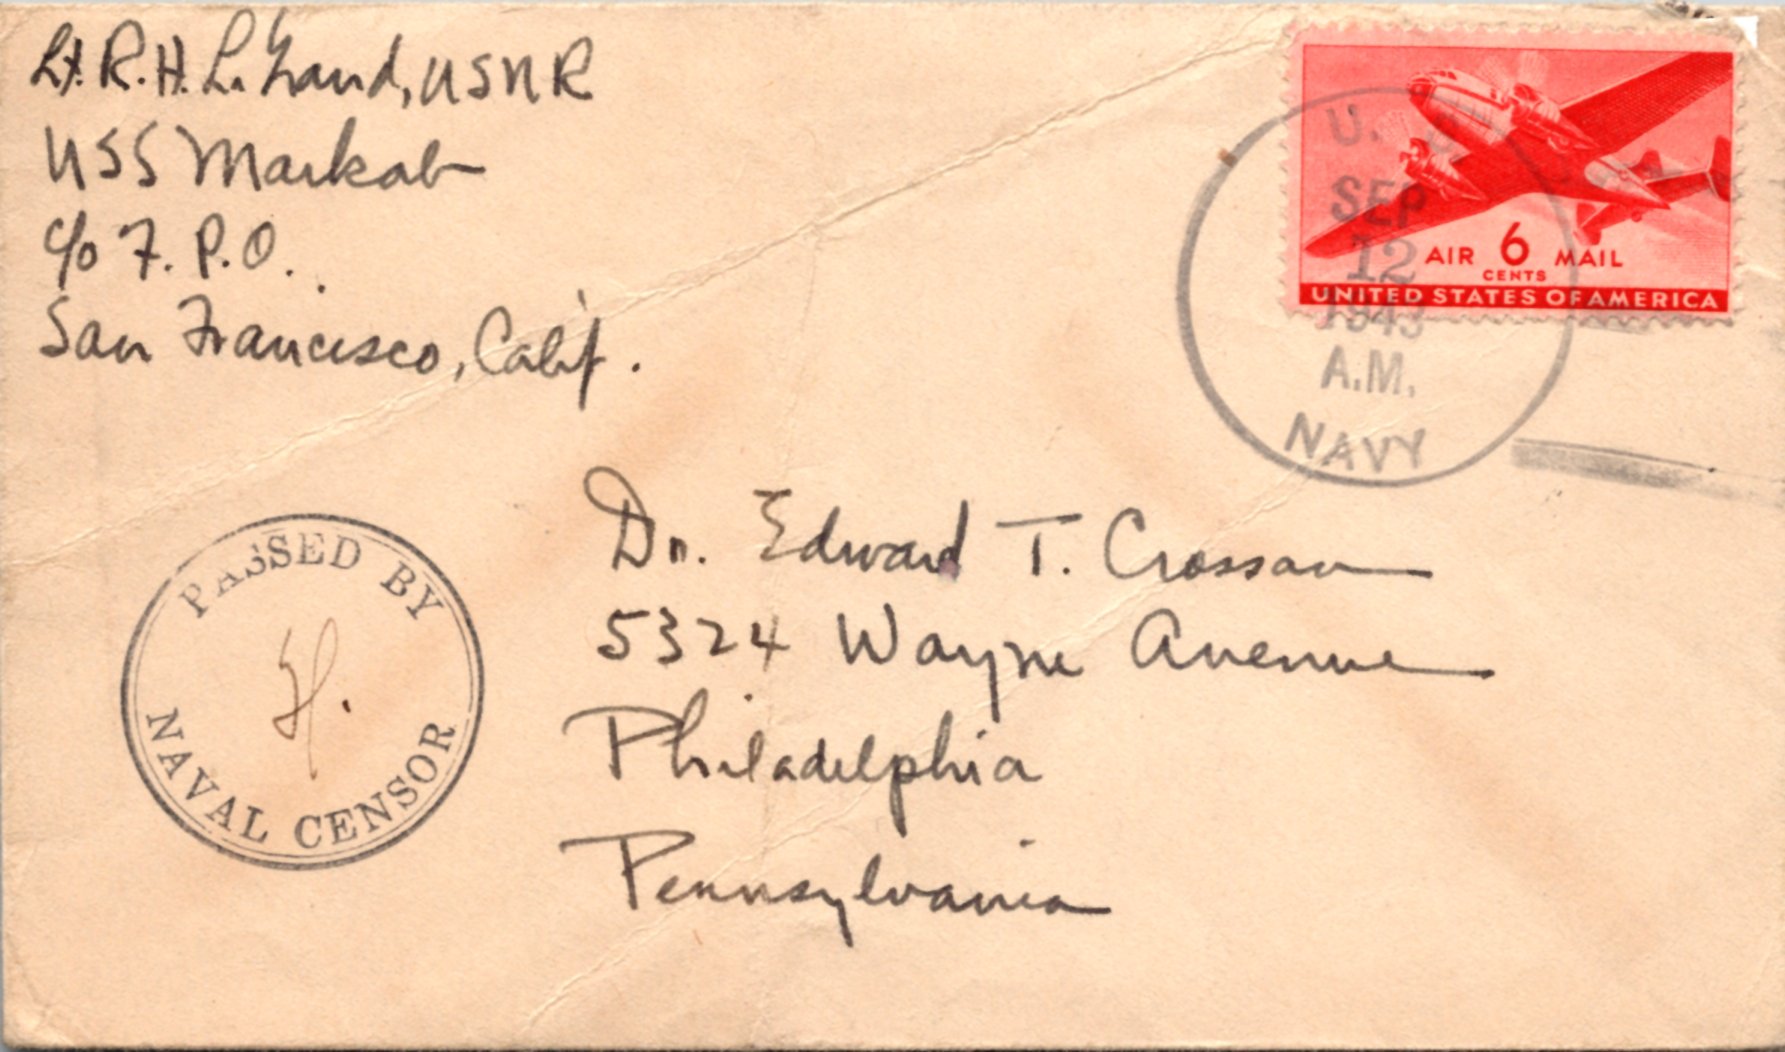 Lt. R. H. L. , USNR
USS Markab
c/o F. P. O.
San Francisco, Calif.
U. S.
SEP
12
1943
A.M.
NAVY
AIR 6 MAIL
CENTS
UNITED STATES OF AMERICA
PASSED BY
H.
NAVAL CENSOR
Dr. Edward T. Crossan
5324 Wayne Avenue
Philadelphia
Pennsylvania